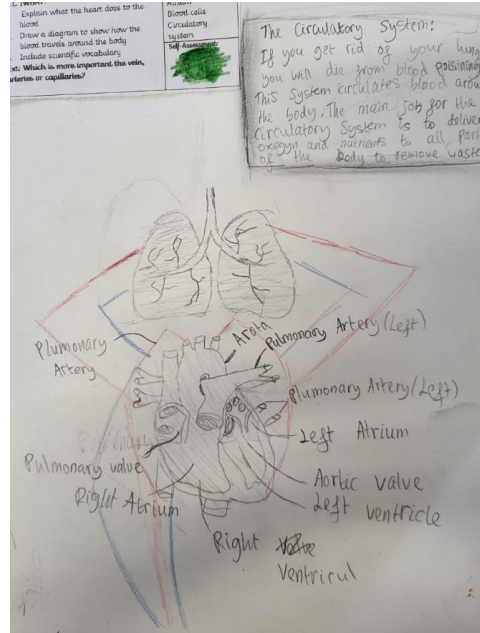 Explain what the heart does to the
blood
Draw a diagram to show how the
blood travels around the body
Include scientific vocabulary
Which is more important the vein,
arteries or capillaries?
Blood cells
Circulatory
system
Self-Assessment:
The Circulatory System:
If you get rid of your lung
you will die from blood poisining
This system circulates blood arou
the body. The main job for the
circulatory System is to deliver
oxegyn and natrients to all part
of the body to remove waste
Plumonary
Artery
Arota
Pulmonary Artery (Left)
Plumonary Artery (Left)
Left Atrium
Pulmonary
Pulmonary valve
Right Atrium
Aortic valve
Left ventricle
Right
Ventricul